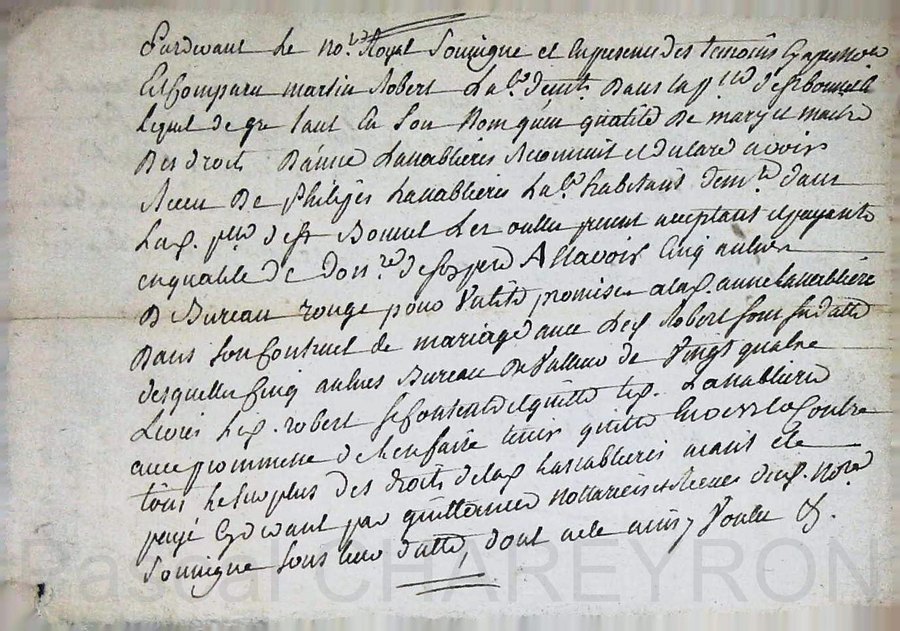 Pardevant Le no.re Royal Soussigné et en presence des temoins cy apres nommés
Est comparu martin Robert Lab.r demt. Dans la p.sse de st bonnet
Lequel de gre tant en Son Nom qu'en qualité De mary et maitre
Des droits D'anne Lanablieres Reconnoit et declare avoir
Receu De Philipes Lanablieres Lab.r habitant dem.t dans
La d. p.sse de st Bonnet Les aulx present acceptant et payant
en qualité de don.re de son pere A Scavoir Cinq aulnes
De Bureau rouge pour Valité promise a la d. anne Lanablieres
Dans Son Contract de mariage avec Led. Robert sous sa datte
desquelles Cinq aulnes Bureau De Valleur de Vingt quatre
Livres Led. robert se contente et quitte led. Lanablieres
avec promesse de l'en faire tenir quitte envers et contre
tous Le Surplus des droits de lad. Lanablieres ayant été
payé cy devant par quittances nottariées et Recues dud. Not.re
Soussigné Sous leur datte dont acte ainsy Voulu &.
Pascal CHAREYRON